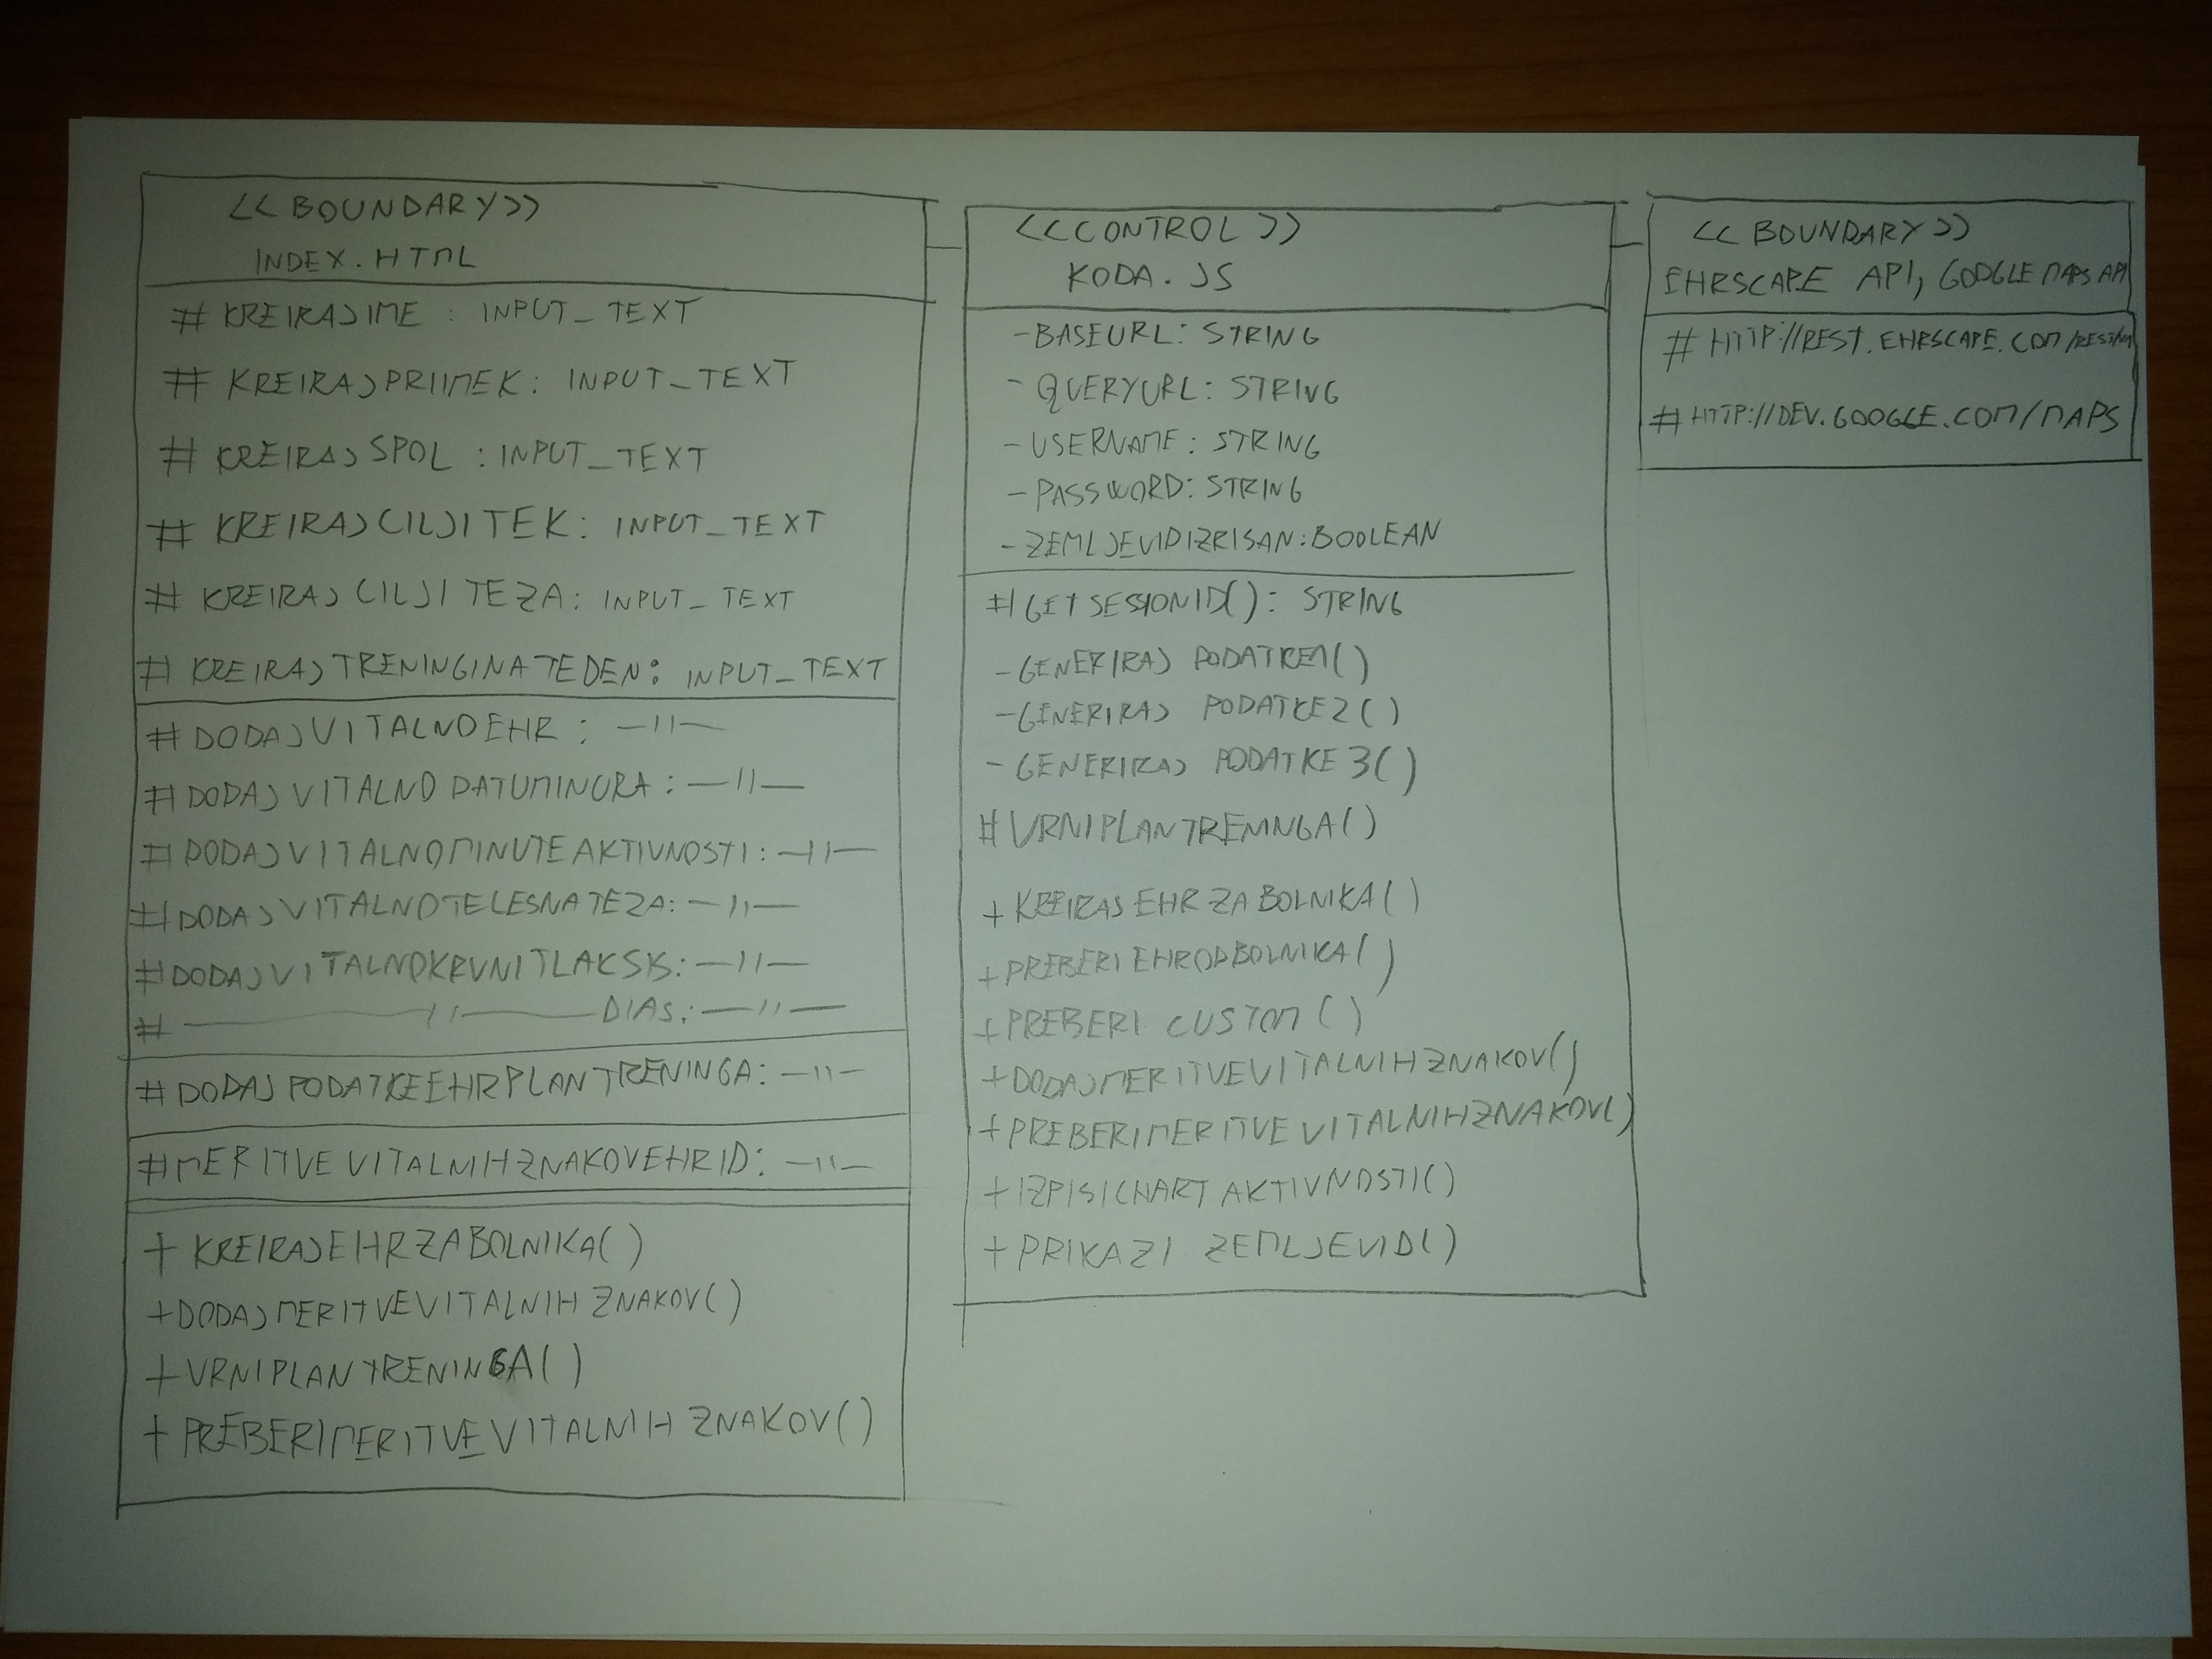 <<BOUNDARY>>
INDEX.HTML
# KREIRAJIME : INPUT_TEXT
# KREIRAJPRIIMEK: INPUT_TEXT
# KREIRAJSPOL : INPUT_TEXT
# KREIRAJCILJITEK: INPUT_TEXT
# KREIRAJCILJITEZA: INPUT_TEXT
# KREIRAJTRENINGINATEDEN: INPUT_TEXT
# DODAJVITALNOEHR : —11—
# DODAJVITALNODATUMINURA : —11—
# DODAJVITALNOMINUTEAKTIVNOSTI: —11—
# DODAJVITALNOTELESNATEZA: —11—
# DODAJVITALNOKRVNITLAKSIS: —11—
# ——11——DIAS: —11—
# DODAJPODATKEEHRPLANTRENINGA: —11—
# MERITVEVITALNIHZNAKOVEHRID: —11—
+ KREIRAJEHRZABOLNIKA()
+ DODAJMERITVEVITALNIHZNAKOV()
+ VRNIPLANTRENINGA()
+ PREBERIMERITVEVITALNIHZNAKOV()
<<CONTROL>>
KODA.JS
- BASEURL: STRING
- QUERYURL: STRING
- USERNAME: STRING
- PASSWORD: STRING
- ZEMLJEVIDIZRISAN: BOOLEAN
# GETSESSIONID(): STRING
- GENERIRAJ PODATKE1()
- GENERIRAJ PODATKE2()
- GENERIRAJ PODATKE3()
# VRNIPLANTRENINGA()
+ KREIRAJEHRZABOLNIKA()
+ PREBERIEHRODBOLNIKA()
+ PREBERI CUSTOM()
+ DODAJMERITVEVITALNIHZNAKOV()
+ PREBERIMERITVEVITALNIHZNAKOV()
+ IZPISICHARTAKTIVNOSTI()
+ PRIKAZI ZEMLJEVID()
<<BOUNDARY>>
EHRSCAPE API, GOOGLE MAPS API
# HTTP://REST.EHRSCAPE.COM/REST/
# HTTP://DEV.GOOGLE.COM/MAPS